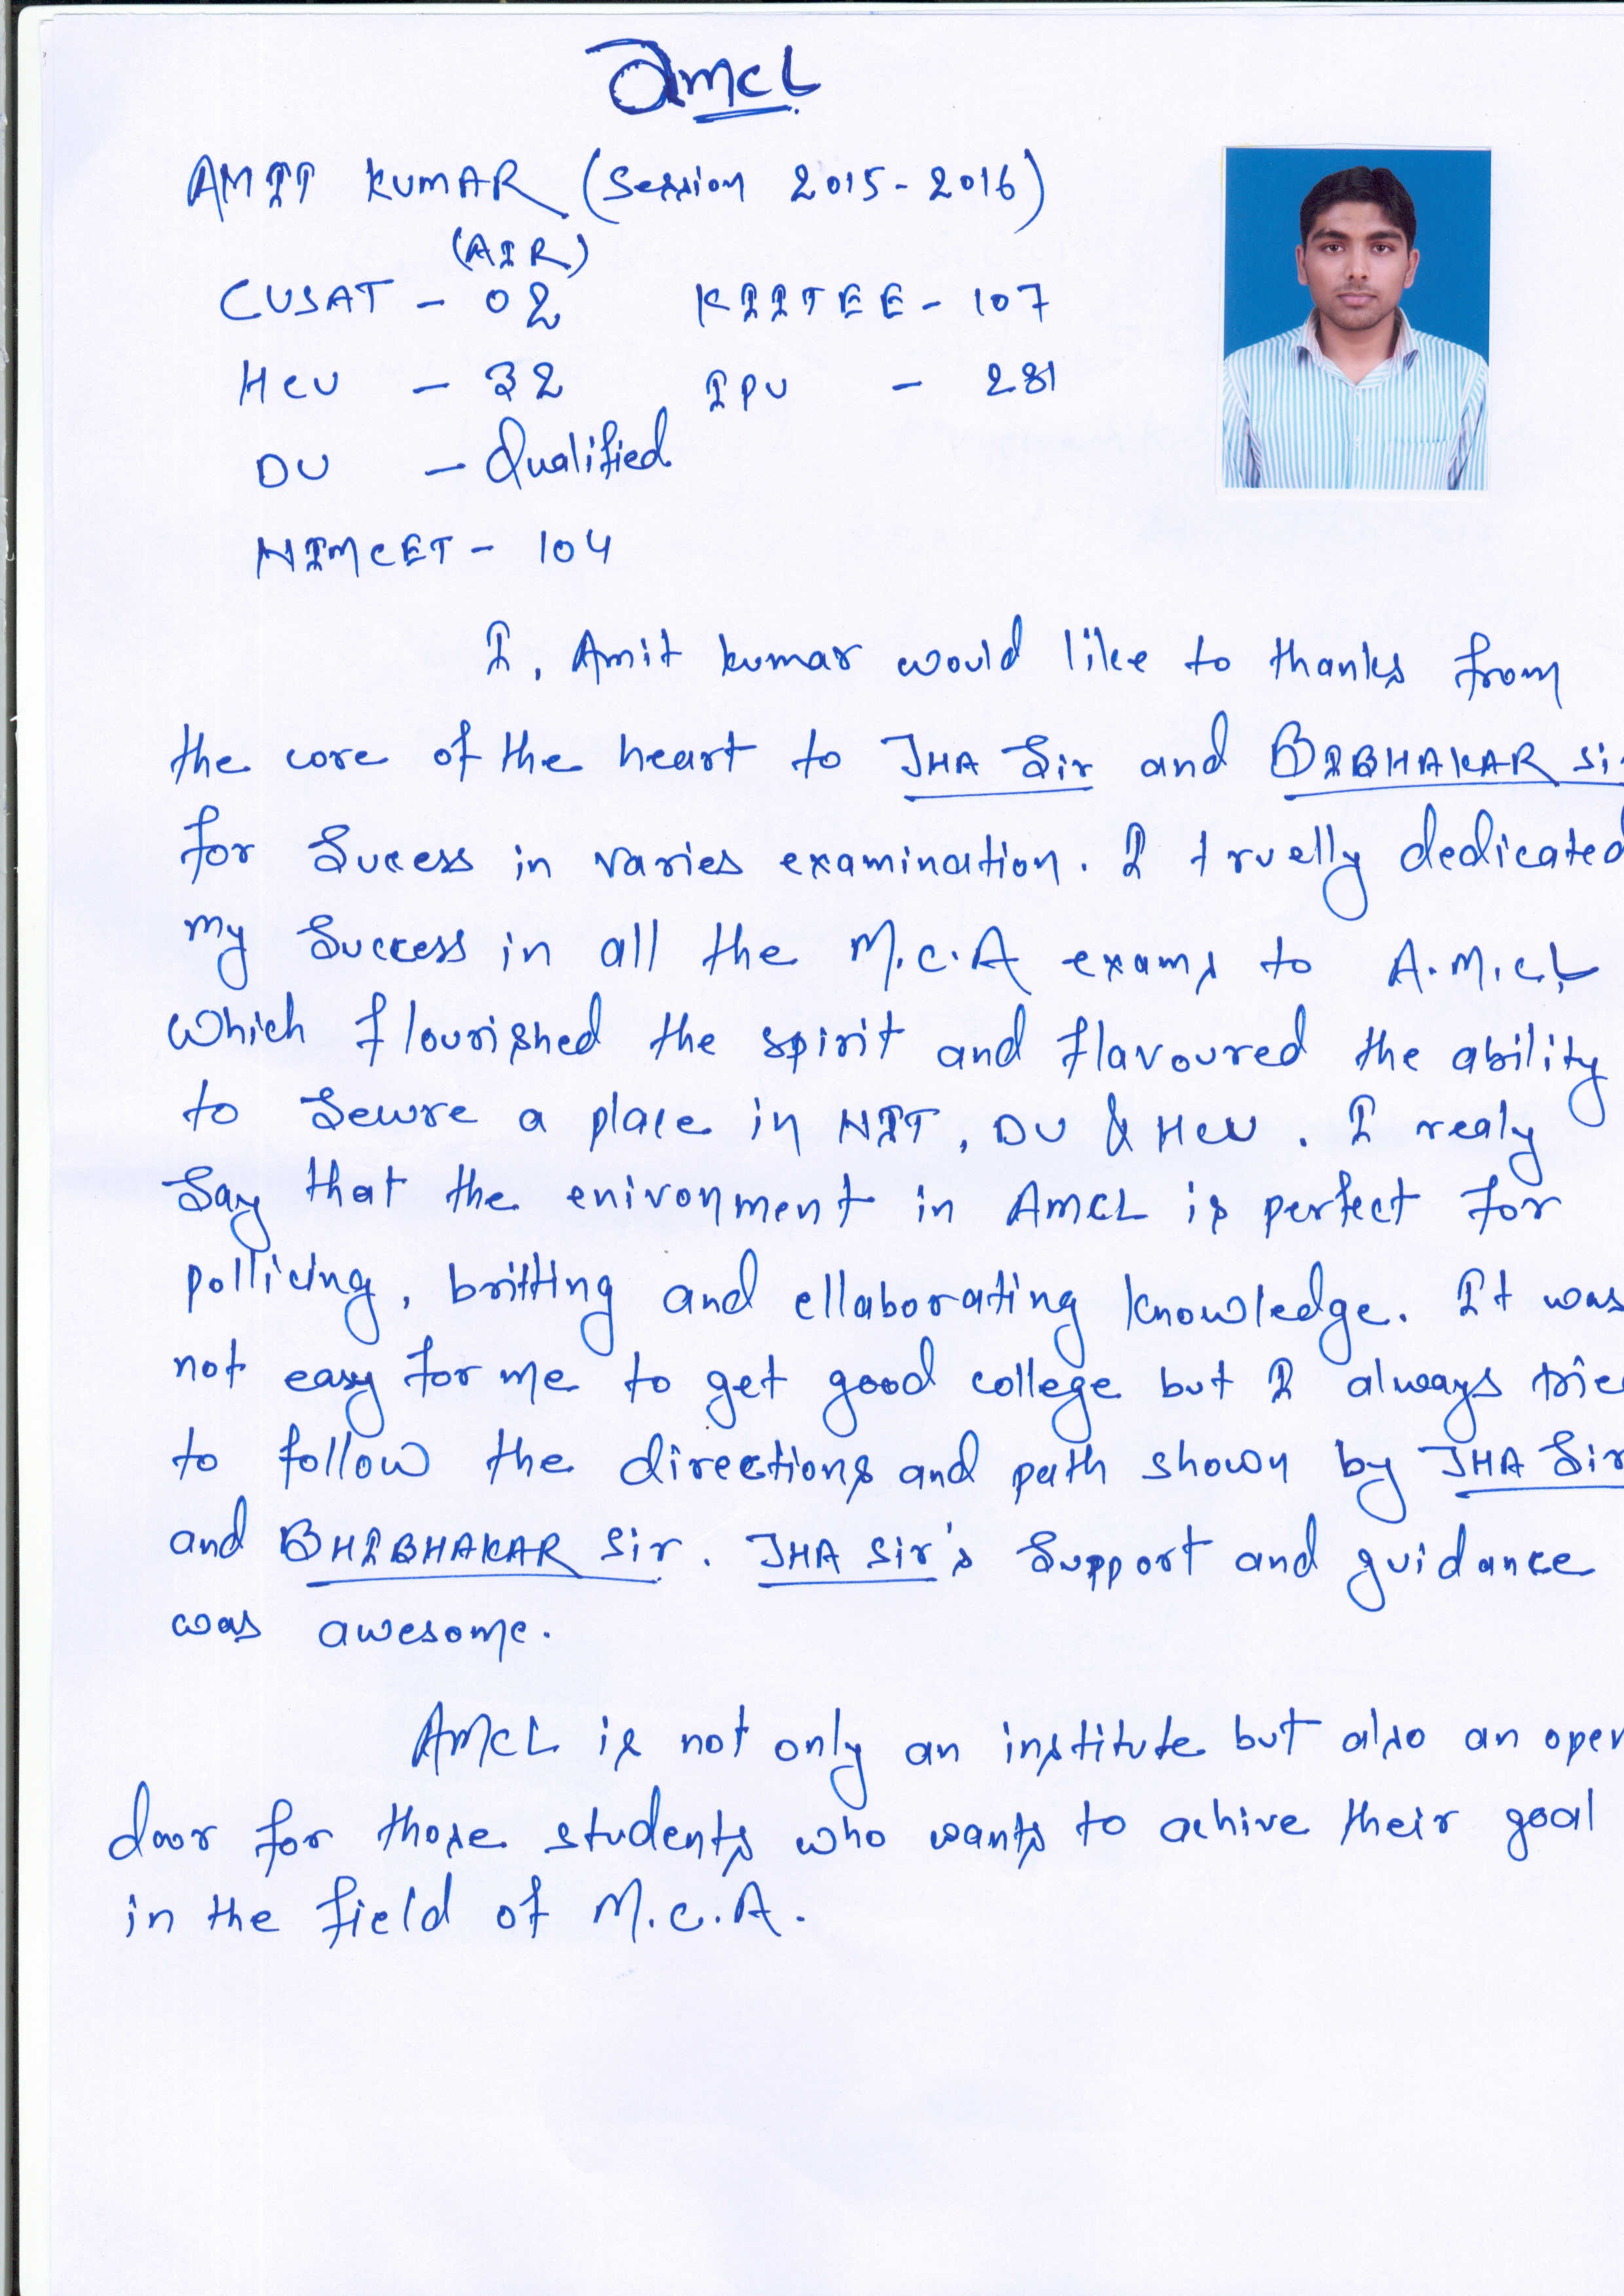 AMCL
AMIT KUMAR (Session 2015-2016)
(AIR)
CUSAT - 02 KIITEE - 107
HCU - 32 IPU - 281
DU - Qualified
NIMCET - 104
I, Amit kumar would like to thanks from
the core of the heart to JHA Sir and BIBHAKAR Sir
for Sucess in varies examination. I truelly dedicated
my Success in all the M.C.A exams to A.M.C.L
which flourished the spirit and flavoured the ability
to Secure a place in NIT, DU & HCU. I realy
Say that the enivonment in AMCL is perfect for
pollicing, britting and ellaborating knowledge. It was
not easy for me to get good college but I always trie
to follow the directions and path shown by JHA Sir
and BHIBHAKAR Sir. JHA Sir's Support and guidance
was awesome.
AMCL is not only an institute but also an open
door for those students who wants to achive their goal
in the field of M.C.A.